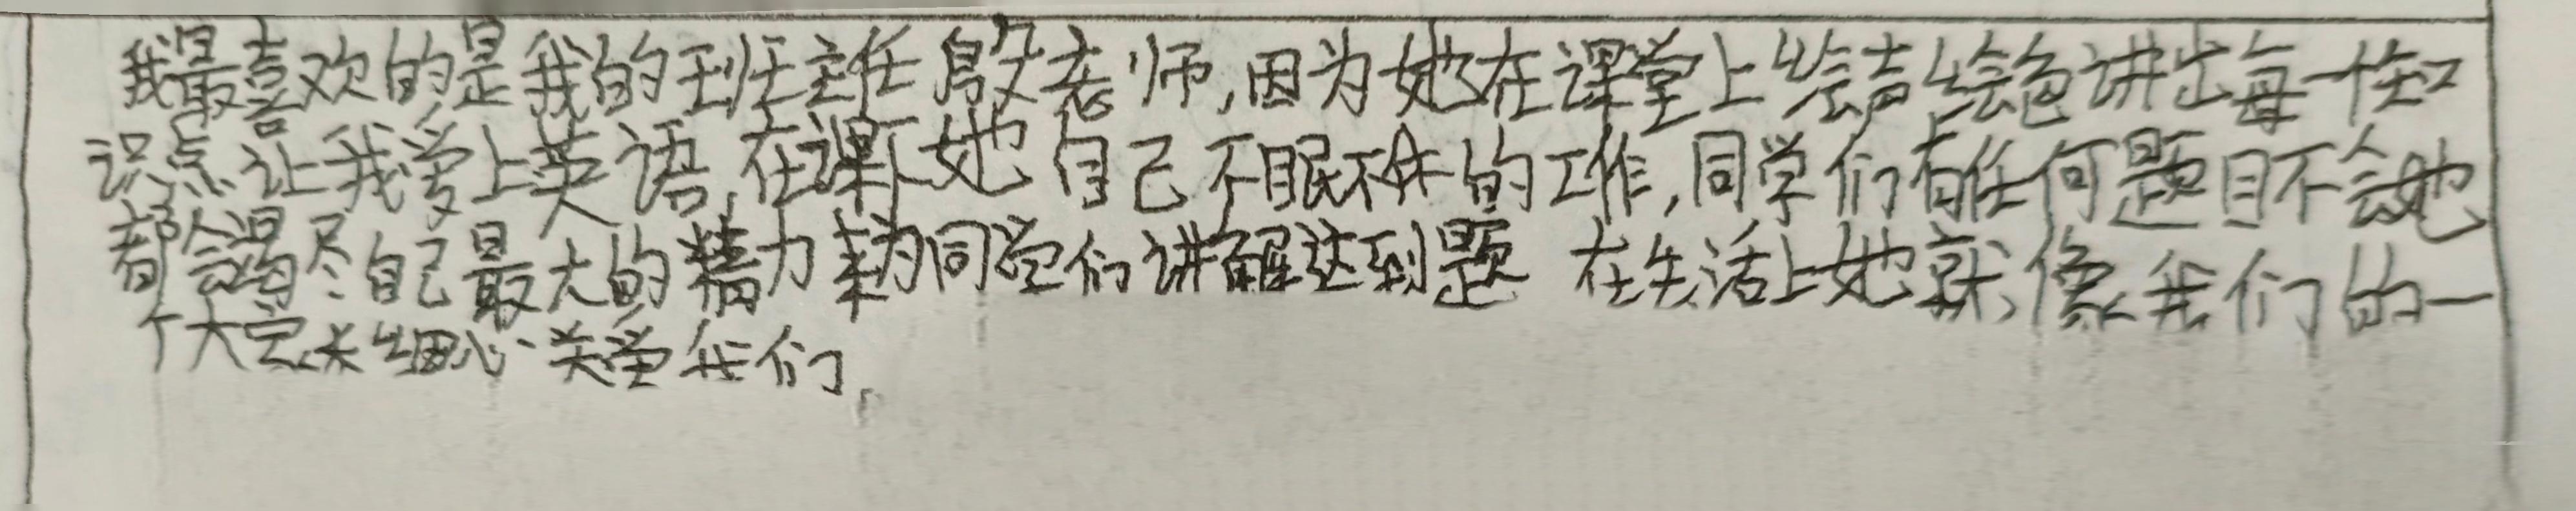 我最喜欢的是我的班主任殷老师,因为她在课堂上绘声绘色讲出每一个知
识点让我爱上英语,在课下她自己不眠不休的工作,同学们有任何题目不会她
都会竭尽自己最大的精力来为同学们讲解这到题 在生活上她就像我们的一
个大家长细心关爱我们,